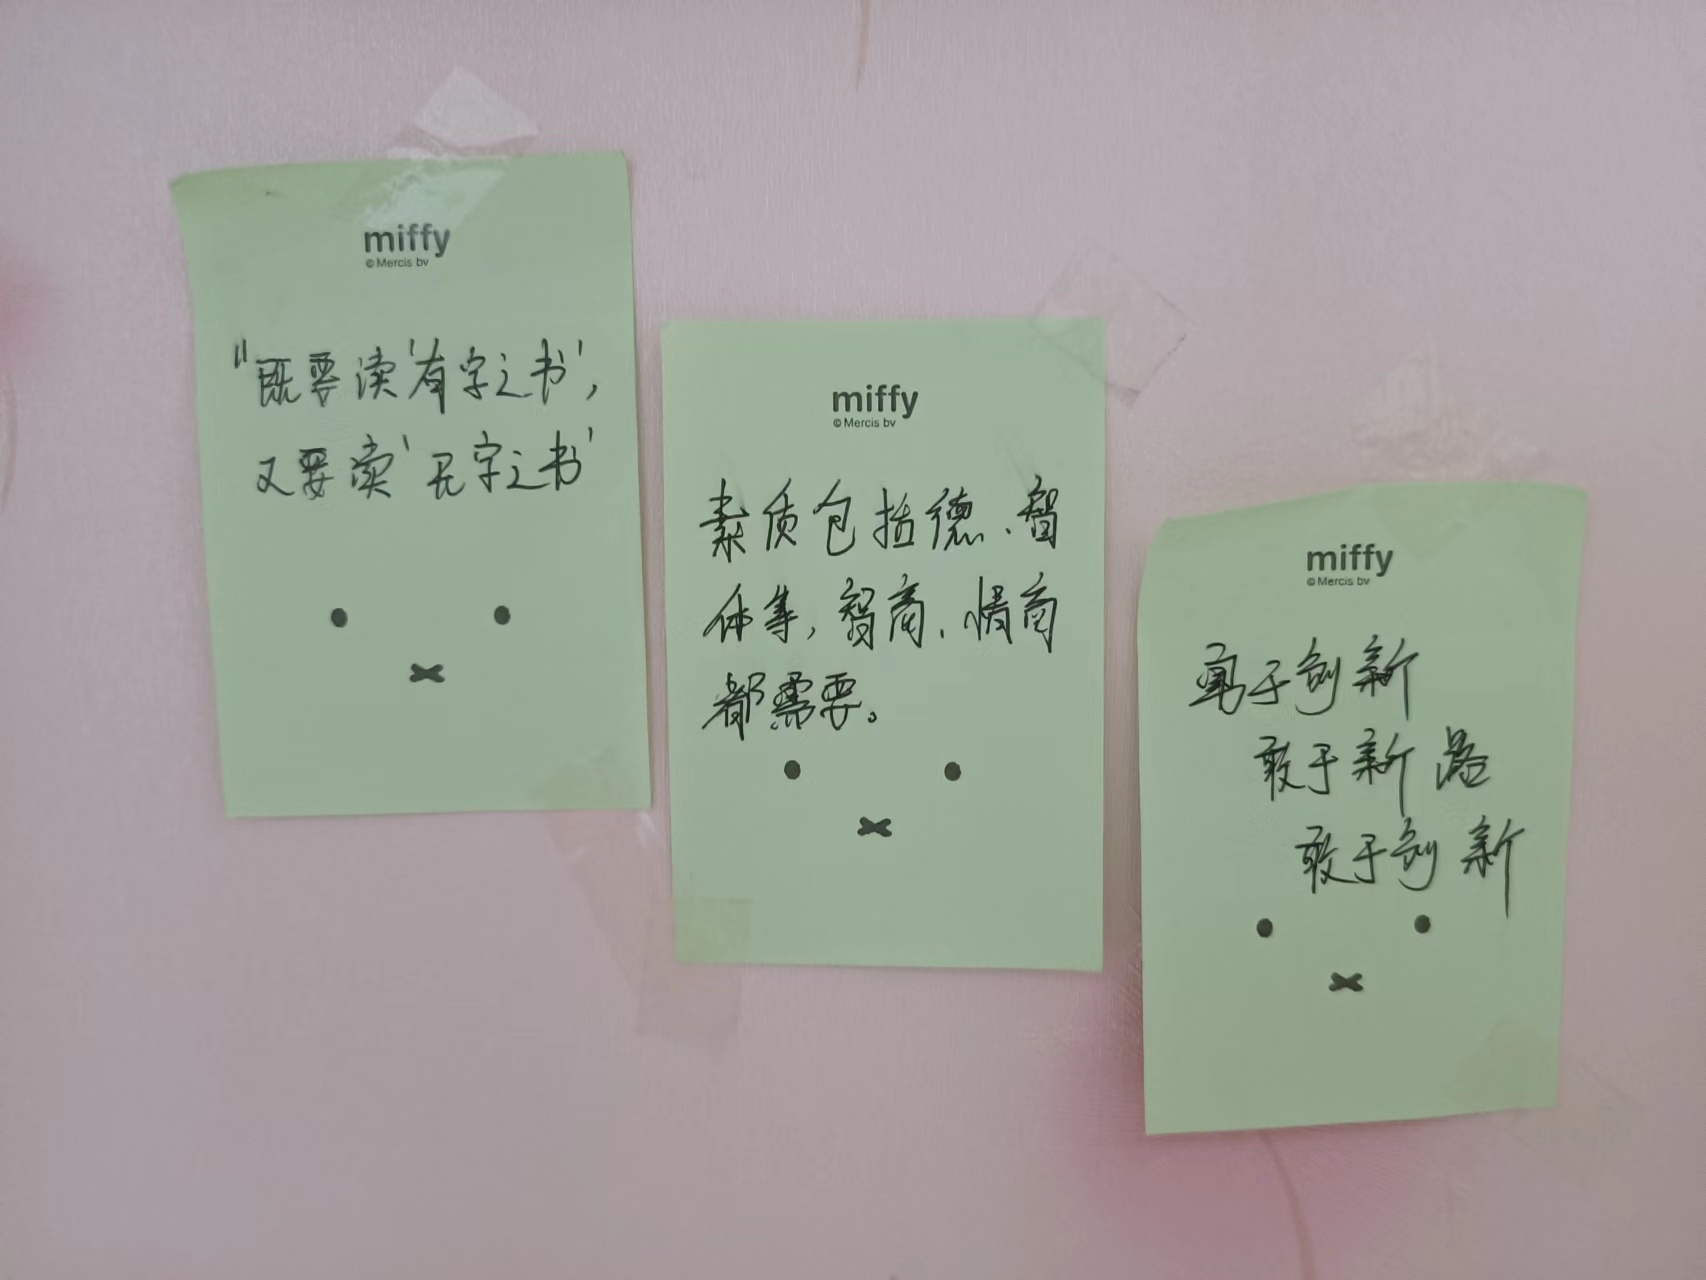 miffy
© Mercis bv
"既要读'有字之书',
又要读'无字之书'
miffy
© Mercis bv
素质包括德、智
体等,智商、情商
都需要。
miffy
© Mercis bv
于创新
敢于新路
敢于创新